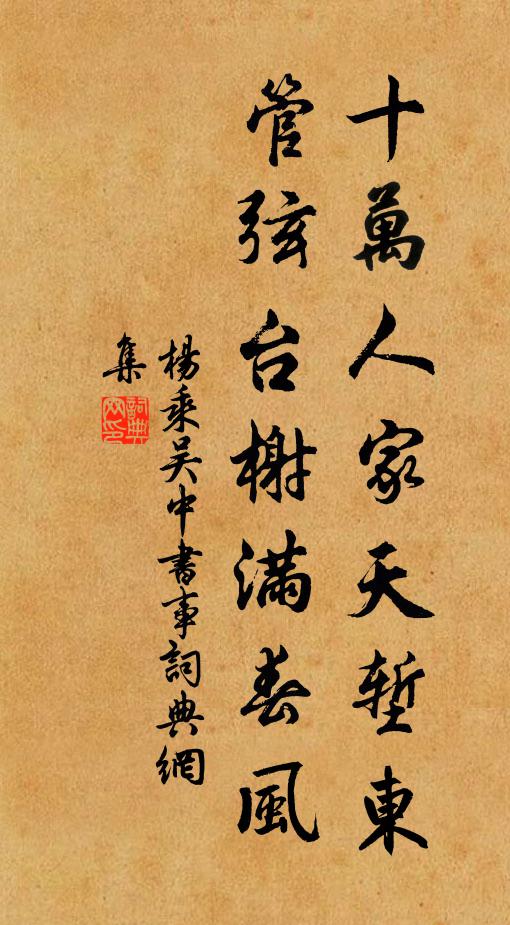 十萬人家天塹東
管弦台榭滿春風
楊乘吴中書事詞典網
集
詞典
网印